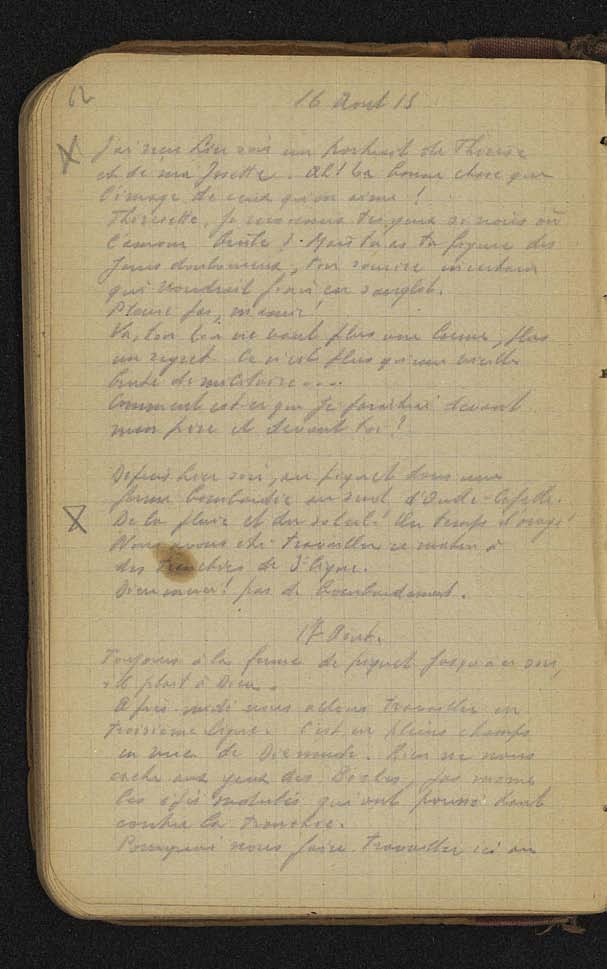 62
16 Aout 15
J'ai reçu hier soir un portrait de Thérèse
et de ma Josette. Ah! la bonne chose que
l'image de ceux qu'on aime!
Theresette, je reconnais tes yeux si noirs où
l'amour brûle! Mais tu as ta figure des
jours douloureux, ton sourire
qui voudrait finir en sanglot.
Pleure pas, m'amie!
Va, ton ne vaut plus une larme, plus
un regret. Ce n'est plus qu'une vieille
brute de militaire...
Comment est-ce que je paraîtrai devant
mon père et devant toi?
Depuis hier soir, au piquet dans une
ferme bombardée au sud d'Oude-
De la pluie et du soleil! Un temps d'orage!
Nous avons été travailler ce matin à
des tranchées de 3e ligne.
Dieu merci! pas de bombardement.
17 Aout.
Toujours à la ferme de piquet jusqu'à ce soir,
s'il plait à Dieu.
Après-midi nous allons travailler en
troisième ligne. C'est en pleins champs
en vue de Dixmude. Rien ne nous
cache aux yeux des Boches, pas même
les épis qui ont poussé tout
contre la tranchée.
Pourquoi nous faire travailler ici au